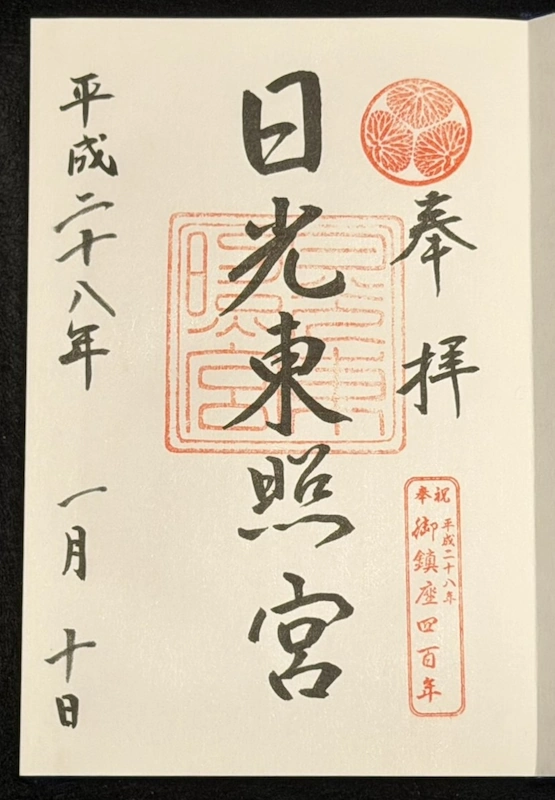 奉拝
奉祝
平成二十八年
御鎮座四百年
日光東照宮
平成二十八年 一月 十日